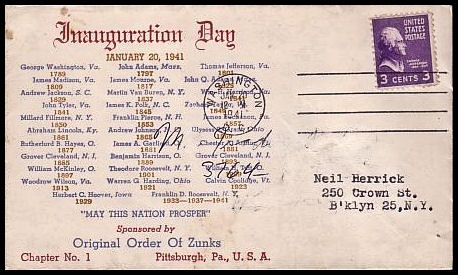 Inauguration Day
JANUARY 20, 1941
George Washington, Va. John Adams, Mass. Thomas Jefferson, Va.
1789 1797 1801
James Madison, Va. James Monroe, Va. John Q. Adams,
1809 1817 1825
Andrew Jackson, S. C. Martin Van Buren, N. Y. Wm. H. Harrison,
1829 1837 1841
John Tyler, Va. James K. Polk, N. C. Zachary
1841 1845 1849
Millard Fillmore, N. Y. Franklin Pierce, N. H. James Buchanan, Pa.
1850 1853 1857
Abraham Lincoln, Ky. Andrew Johnson, Ulysses S. Grant, Ohio
1861 1865
Rutherford B. Hayes, O. James A. Garfield, Chester A. Arthur
1877 1881 1881
Grover Cleveland, N. J. Benjamin Harrison, O. Grover Cleveland, N. J.
1885 1889 1893
William McKinley, O. Theodore Roosevelt, N. Y.
1897 1901
Woodrow Wilson, Va. Warren G. Harding, Ohio Calvin Coolidge, Vt.
1913 1921 1923
Herbert C. Hoover, Iowa Franklin D. Roosevelt, N. Y.
1929 1933-1937-1941
"MAY THIS NATION PROSPER"
Sponsored by
Original Order Of Zunks
Chapter No. 1 Pittsburgh, Pa., U. S. A.
WASHINGTON
JAN
1941
3 CENTS 3
Neil Herrick
250 Crown St.
B'klyn 25, N.Y.